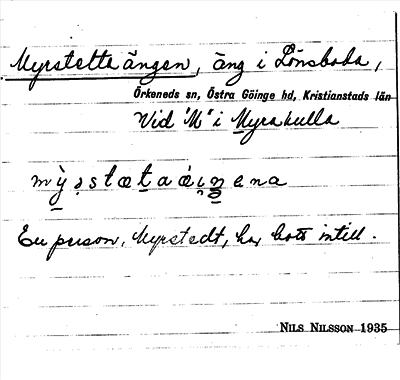 Myrstettaängen, äng i Lönsboda,
Örkeneds sn, Östra Göinge hd, Kristianstads län
Vid "M" i Myrakulla
En person, Myrstedt, har bott intill.
NILS NILSSON 1935